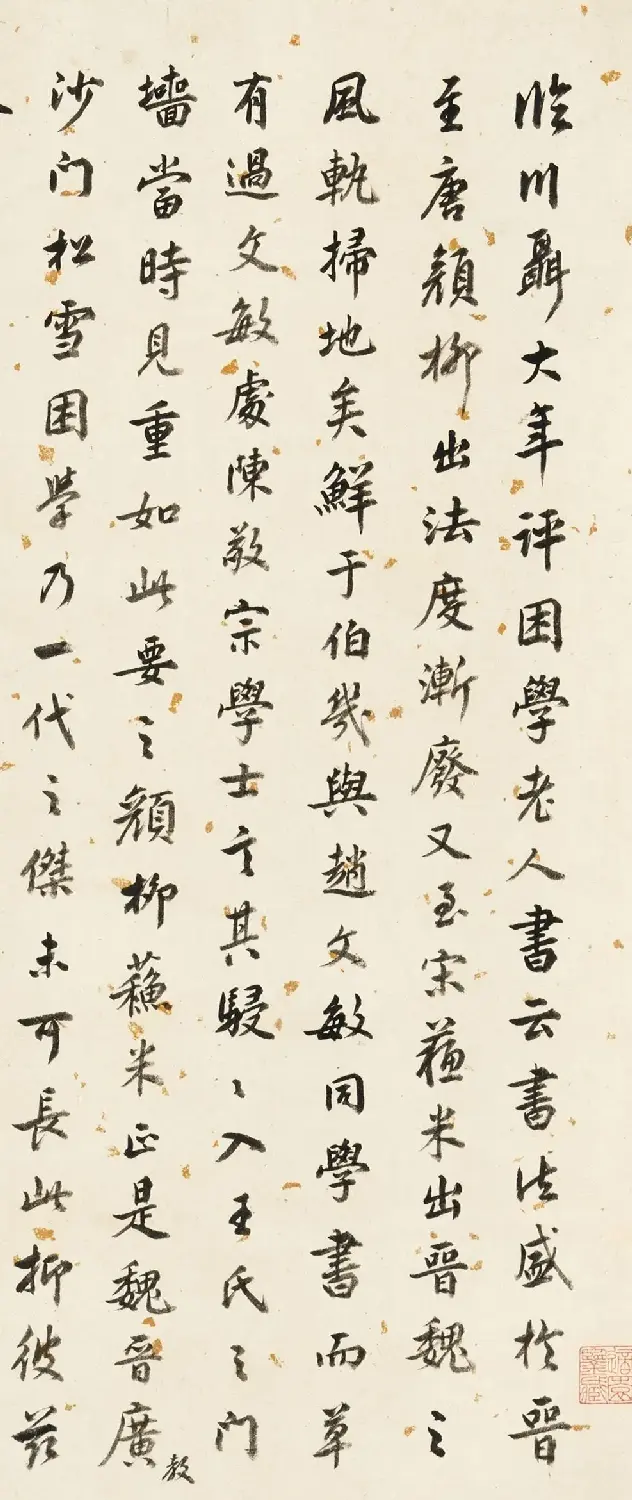 臨川聶大年評困學老人書云書法盛於晉
至唐顏柳出法度漸廢又至宋蘇米出晉魏之
風軌掃地矣鮮于伯幾與趙文敏同學書而草
有過文敏處陳敬宗學士言其駸〻入王氏之門
墻當時見重如此要之顏柳蘇米正是魏晉廣教
沙门松雪困學乃一代之傑未可長此抑彼茲